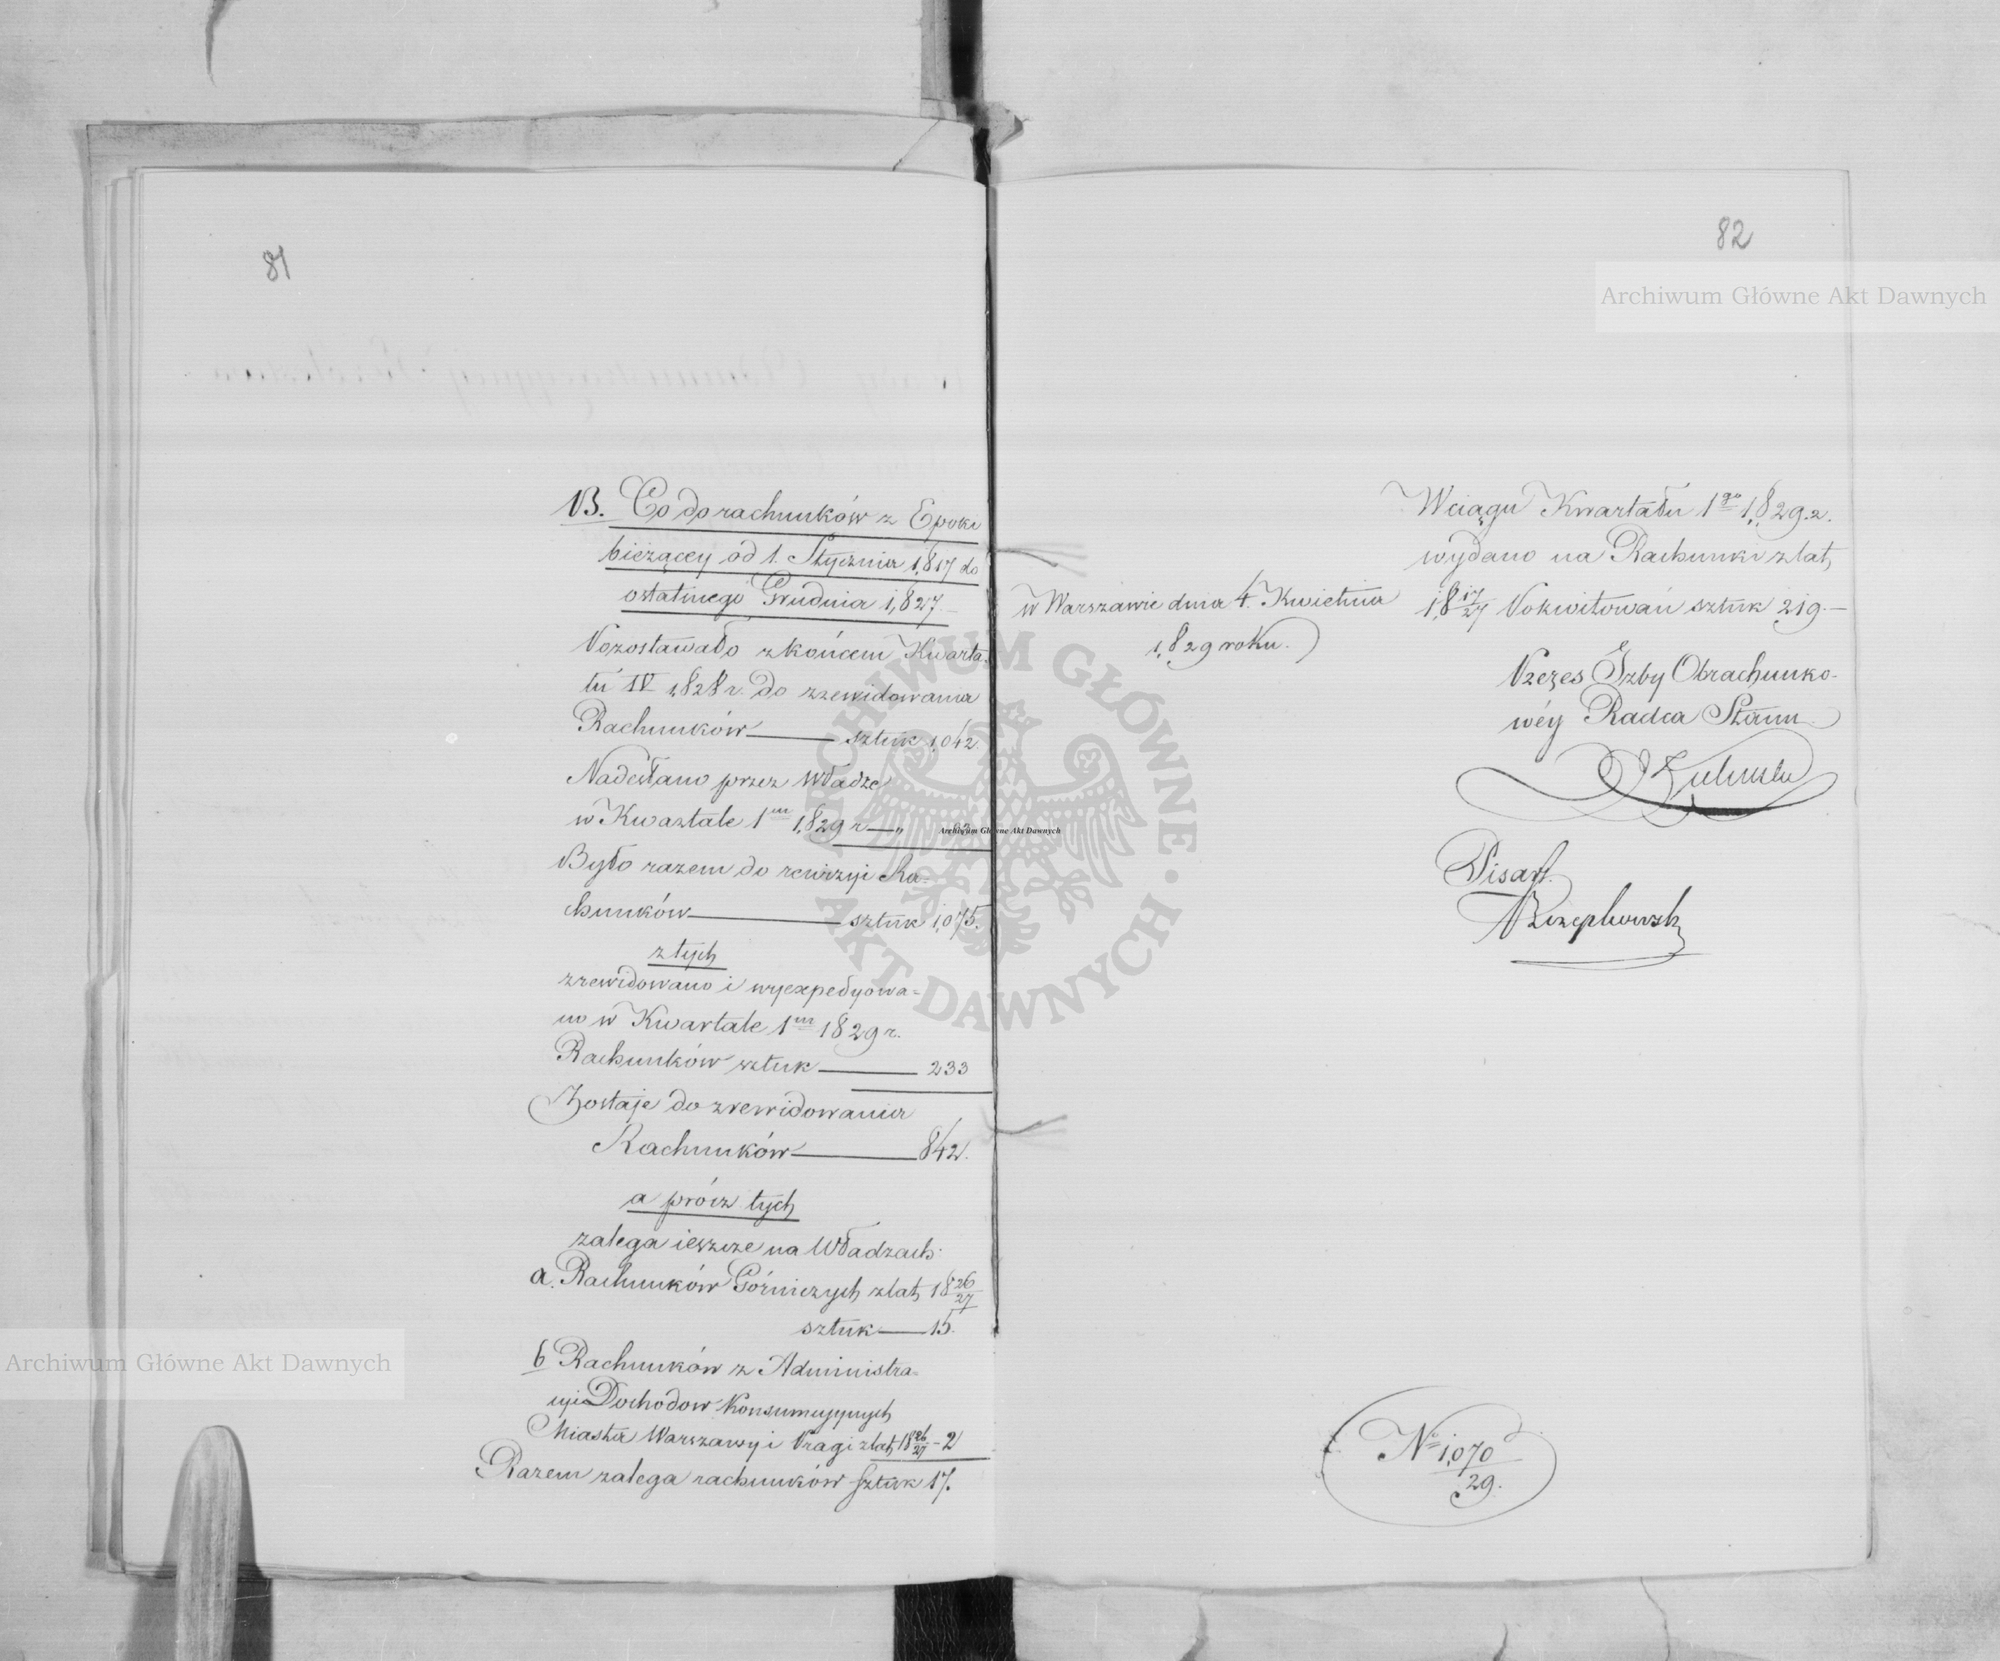 81
B. Co do rachunków z Epoki
bieżącey od 1. Stycznia 1,817 do
ostatniego Grudnia 1,827.
Pozostawało z końcem Kwarta-
łu IV 1,828 r. do zrewidowania
Rachunków sztuk 1,042.
Nadesłano przez Władze
w Kwartale 1m 1,829 r „
Było razem do rewizyi Ra-
chunków sztuk 1,075.
z tych
zrewidowano i wyexpedyowa-
no w Kwartale 1m 1829 r.
Rachunków sztuk 233
Zostaje do zrewidowania
Rachunków 842.
a prócz tych
zalega ieszcze na Władzach:
a. Rachunków Górniczych z lat 18 26/27
sztuk 15.
b Rachunków z Administra-
cyi Dochodow Konsumcyjnych
Miasta Warszawy i Pragi z lat 18 26/27 - 2
Razem zalega rachunków sztuk 17.
82
W ciągu Kwartału 1go 1,829 r.
wydano na Rachunki z lat
1,8 17/27 Pokwitowań sztuk 219.—
w Warszawie dnia 4. Kwietnia
1,829 roku.
Prezes Izby Obrachunko-
wéy Radca Stanu
Pisarz
Rzepkowski
No 1,070/29.
Archiwum Główne Akt Dawnych
Archiwum Główne Akt Dawnych
Archiwum Główne Akt Dawnych
ARCHIWUM GŁÓWNE · AKT DAWNYCH ·